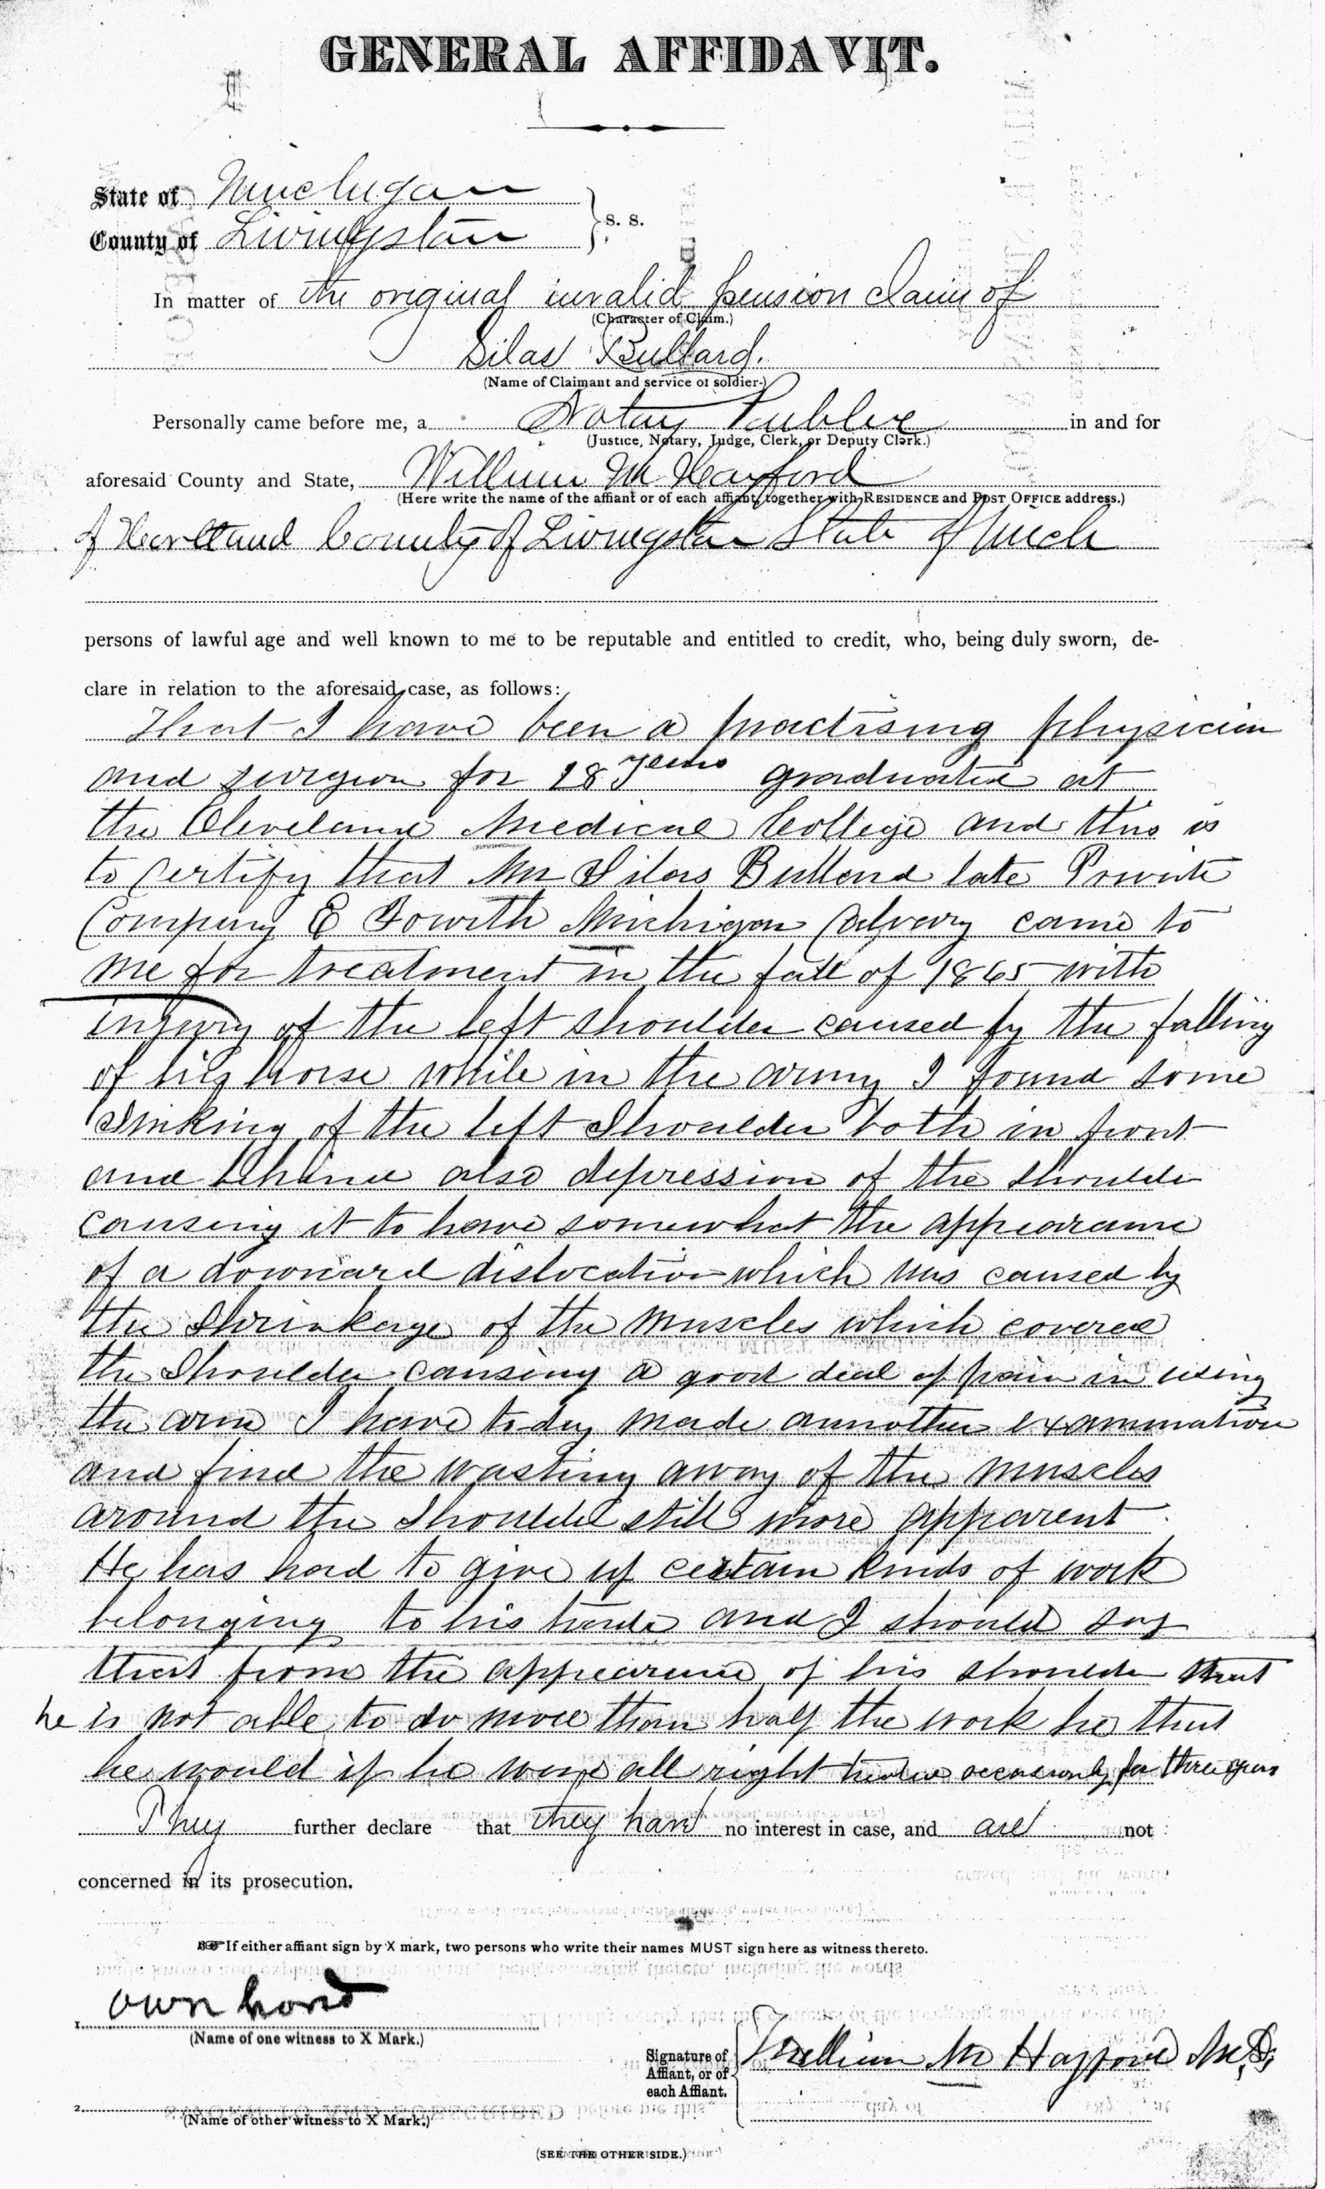 GENERAL AFFIDAVIT.
State of Michigan
County of Livingston } s. s.
In matter of the original invalid pension claim of
(Character of Claim.)
Silas Bullard.
(Name of Claimant and service of soldier.)
Personally came before me, a Notary Public in and for
(Justice, Notary, Judge, Clerk, or Deputy Clerk.)
aforesaid County and State, William M Hayford
(Here write the name of the affiant or of each affiant, together with RESIDENCE and POST OFFICE address.)
of Hartland County of Livingston State of Mich
persons of lawful age and well known to me to be reputable and entitled to credit, who, being duly sworn, de-
clare in relation to the aforesaid case, as follows:
That I have been a practising physician
and surgeon for 28 years graduated at
the Cleveland Medical College and this is
to certify that Mr Silas Bullard late Private
Company E Fowrth Michigan Calvary came to
me for treatment in the fall of 1865 with
injury of the left shoulder caused by the falling
of his horse while in the army I found some
Sinking of the left Shoulder both in front
and behind also depression of the shoulder
causing it to have somewhat the appearance
of a downward dislocation which was caused by
the Shrinkage of the muscles which covered
the Shoulder causing a good deal of pain in using
the arm I have today made annother examination
and find the wasting away of the muscles
around the Shoulder still more apparent
He has had to give up certain kinds of work
belonging to his trade and I should say
that from the appearance of his shoulder that
he is not able to do more than half the work he that
he would if he were all right occasionly for three years
They further declare that they have no interest in case, and are not
concerned in its prosecution.
If either affiant sign by X mark, two persons who write their names MUST sign here as witness thereto.
own hand
1.
(Name of one witness to X Mark.)
Signature of Affiant, or of each Affiant. { William M Hayford M.D.
2.
(Name of other witness to X Mark.)
(SEE THE OTHER SIDE.)